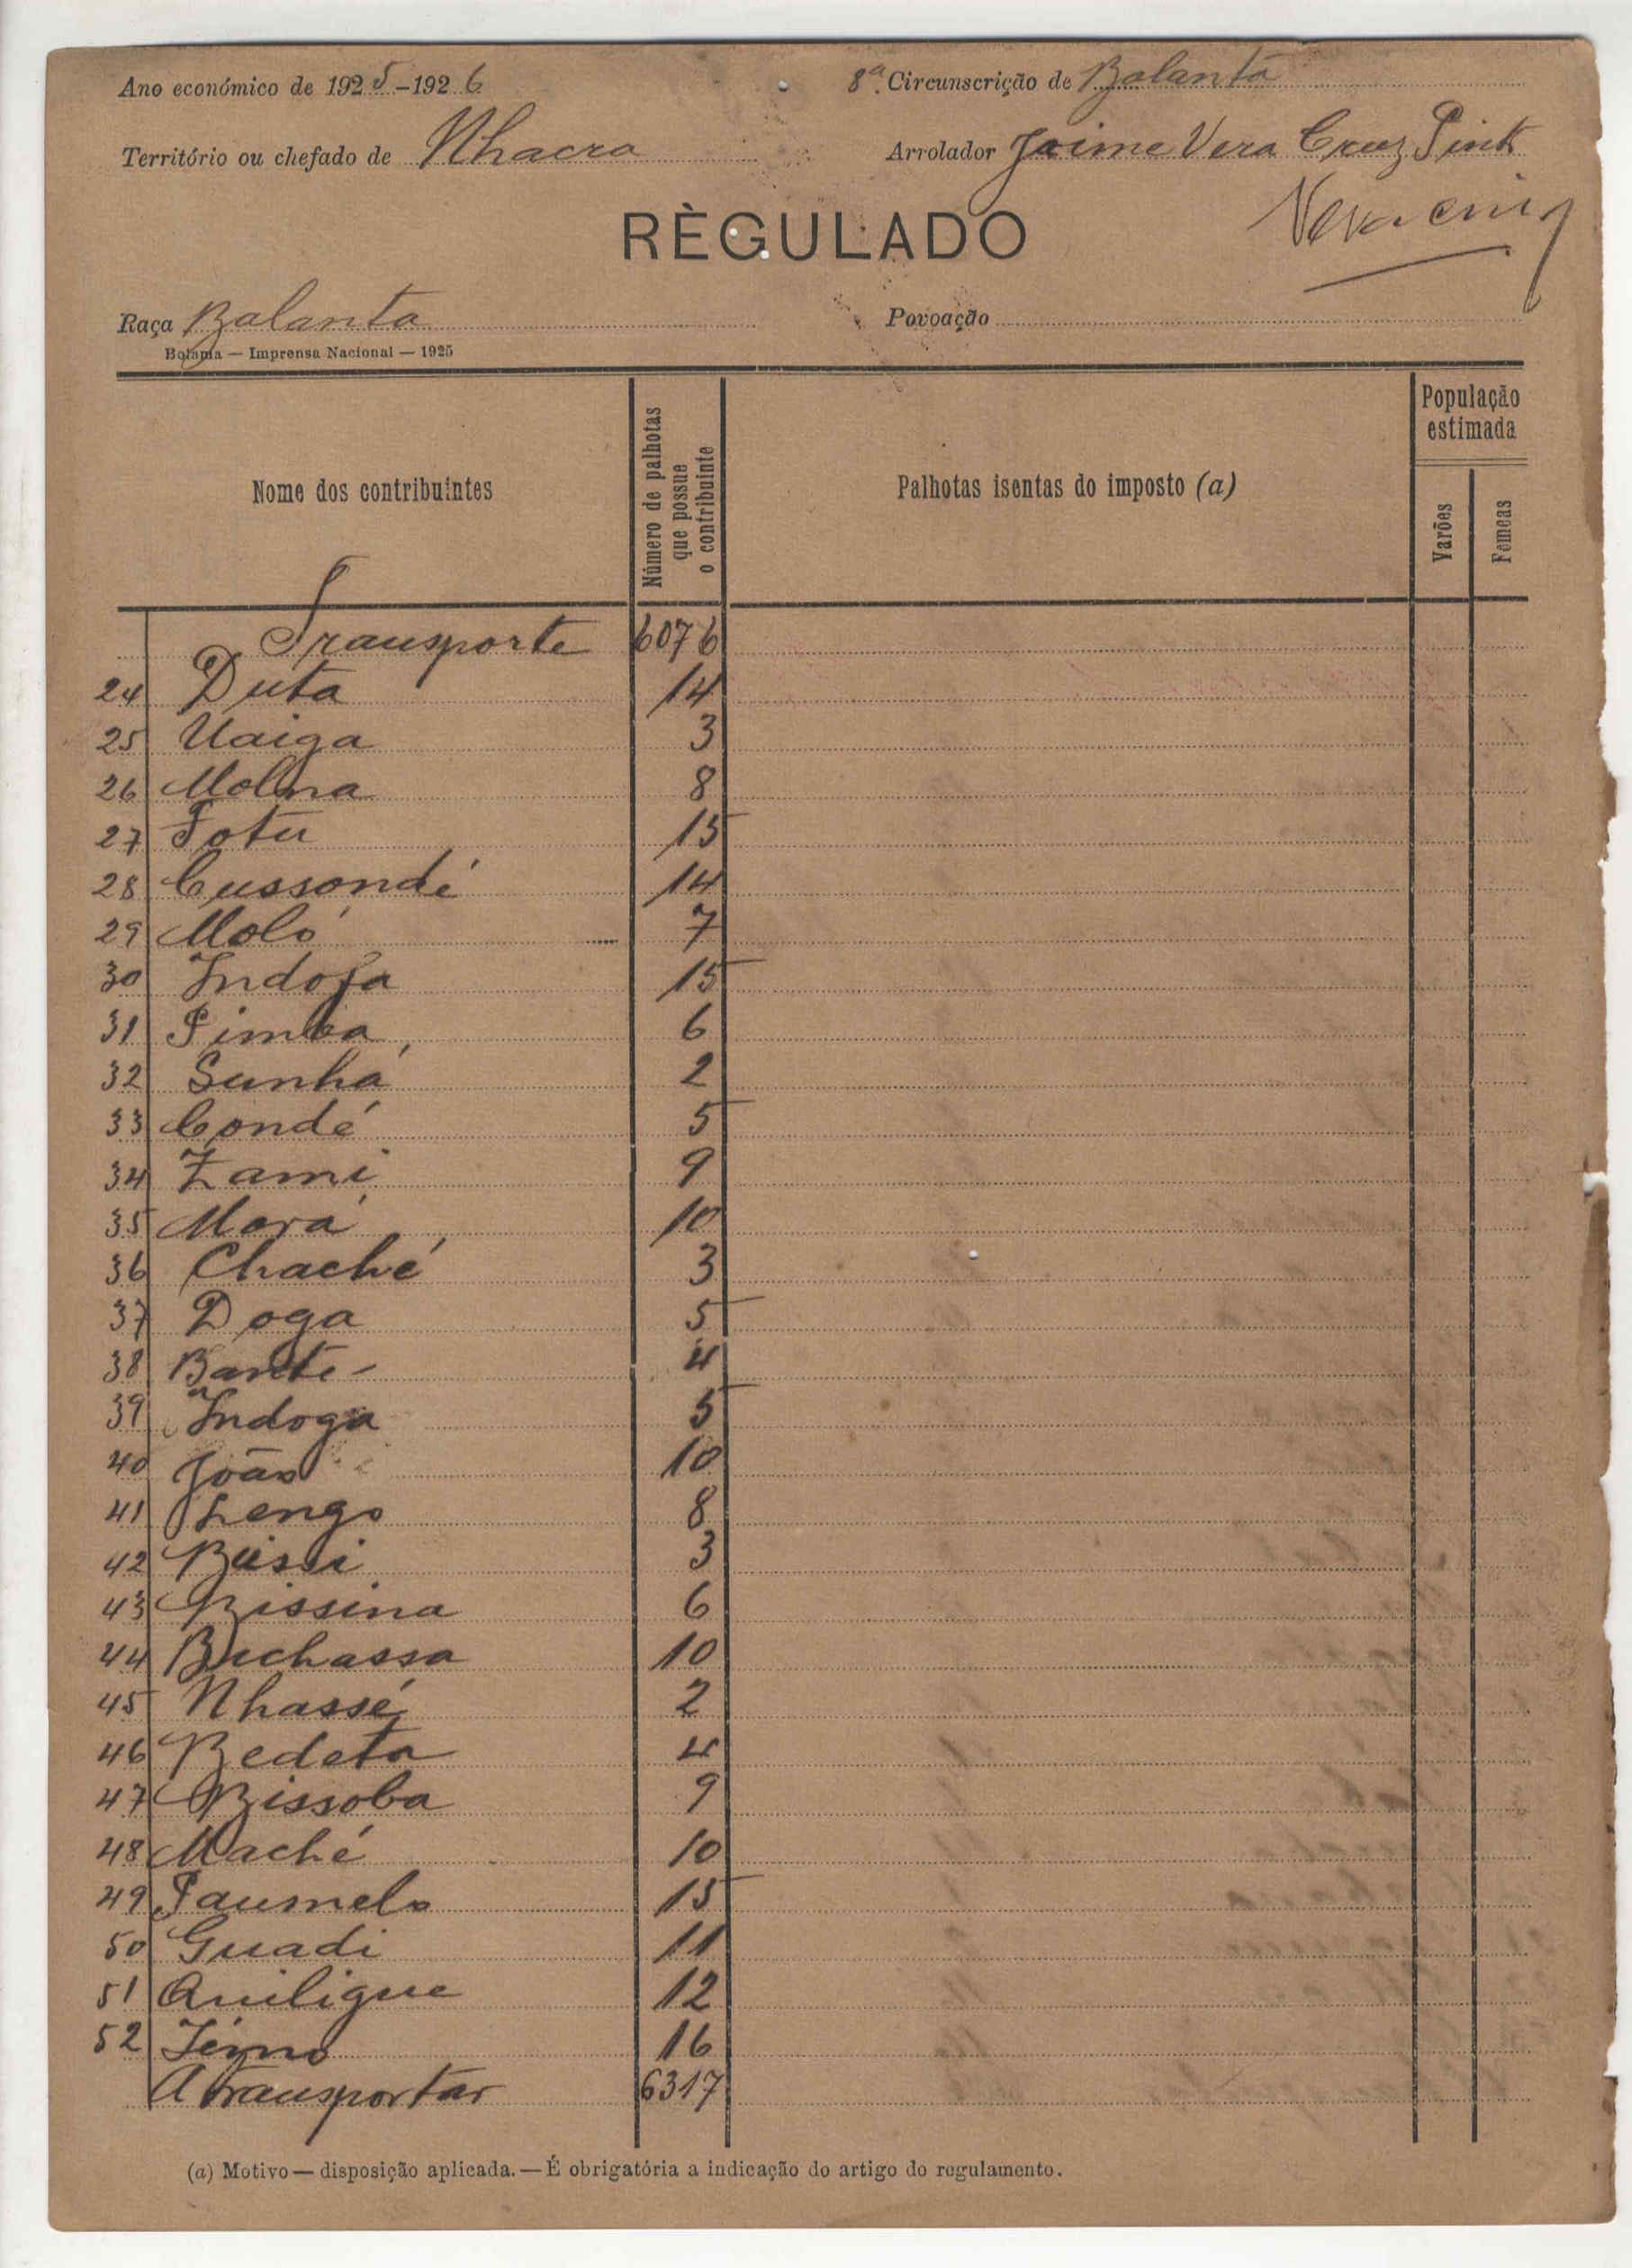 Ano económico de 1925-1926
8ª Circunscrição de Balanta
Território ou chefado de Nhacra
Arrolador Jaime Vera Cruz Pinto
RÈGULADO
Raça Balanta
Povoação
Bolama — Imprensa Nacional — 1925
Nome dos contribuintes
Número de palhotas que possue o contribuinte
Palhotas isentas do imposto (a)
População estimada
Varões
Femeas
Transporte 6076
24 Duta 14
25 Uaiga 3
26 Molna 8
27 Fotu 15
28 Cussondé 14
29 Moló 7
30 Indofa 15
31 Pimba 6
32 Sunhá 2
33 Condé 5
34 Zami 9
35 Morá 10
36 Chaché 3
37 Doga 5
38 Bante 4
39 Indoga 5
40 João 10
41 Lengo 8
42 Bussi 3
43 Bissina 6
44 Buchassa 10
45 Nhassé 2
46 Bedeta 4
47 Bissoba 9
48 Maché 10
49 Paumelo 15
50 Guadi 11
51 Aniligue 12
52 Iémo 16
A transportar 6317
(a) Motivo — disposição aplicada. — É obrigatória a indicação do artigo do regulamento.